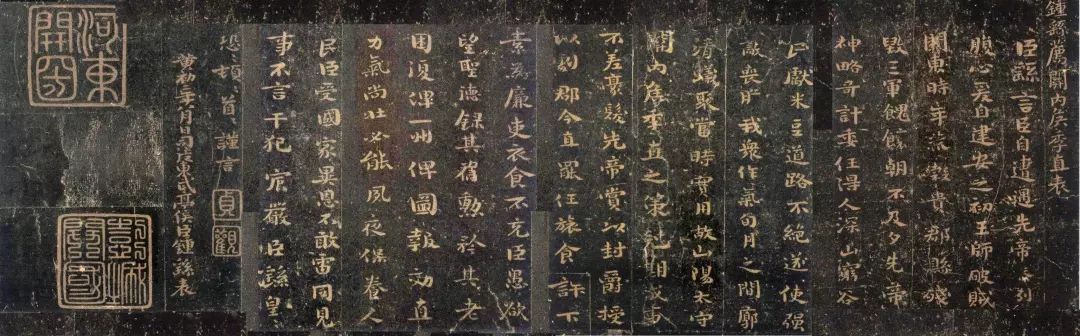 鍾繇薦關內侯季直表
臣繇言臣自遭遇先帝忝列
腹心爰自建安之初王師破賊
關東時年荒穀貴郡縣殘
毀三軍餽饟朝不及夕先帝
神略奇計委任得人深山窮谷
民獻米豆道路不絕遂使强
敵喪膽我衆作氣旬月之間廓
清蟻聚當時實用故山陽太守
關內侯季直之策剋期成事
不差豪髮先帝賞以封爵授
以劇郡今直罷任旅食許下
素為廉吏衣食不充臣愚欲
望聖德錄其舊勳矜其老
困復俾一州俾圖報効直
力氣尚壯必能夙夜保養人
民臣受國家異恩不敢雷同見
事不言干犯宸嚴臣繇皇
恐頓〃首〃謹言 貞觀
黃初二年八月日司徒東武亭侯臣鍾繇表
河東開國